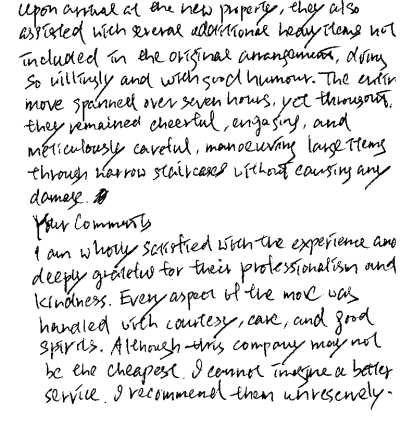 Upon arrival at the new property, they also
assisted with several additional heavy items not
included in the original arrangement, doing
so willingly and with good humour. The entire
move spanned over seven hours, yet throughout,
they remained cheerful, engaging, and
meticulously careful, manoeuving large items
through narrow staircases without causing any
damage.
Your Comments
I am wholly satisfied with the experience and
deeply grateful for their professionalism and
kindness. Every aspect of the move was
handled with courtesy, care, and good
spirits. Although this company may not
be the cheapest. I cannot imagine a better
service. I recommend them unreservedly.